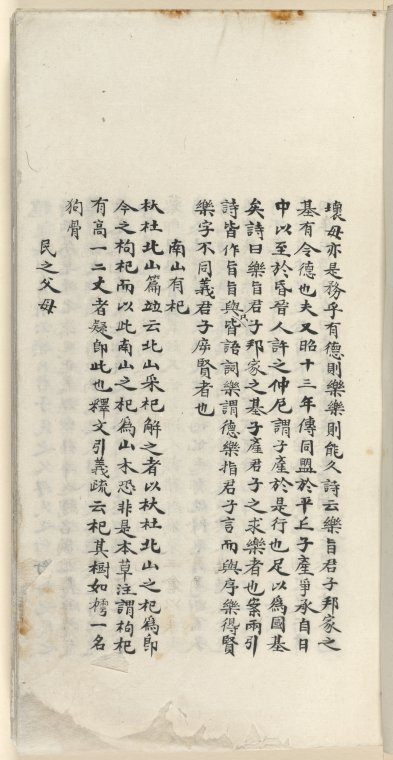 壞毋亦是務乎有德則樂樂則能久詩云樂旨君子邦家之
基有令德也夫又昭十三年傳同盟於平丘子產爭承自日
中以至於昏晉人許之仲尼謂子產於是行也足以爲國基
矣詩曰樂旨君子邦家之基子產君子之求樂者也案兩引
詩皆作旨旨與只皆語詞樂謂德樂指君子言而與序樂得賢
樂字不同義君子序賢者也
南山有杞
杕杜北山篇竝云北山采杞解之者以杕杜北山之杞爲卽
今之枸杞而以此南山之杞爲山木恐非是本草注謂枸杞
有高一二丈者疑卽此也釋文引義疏云杞其樹如樗一名
狗骨
民之父母